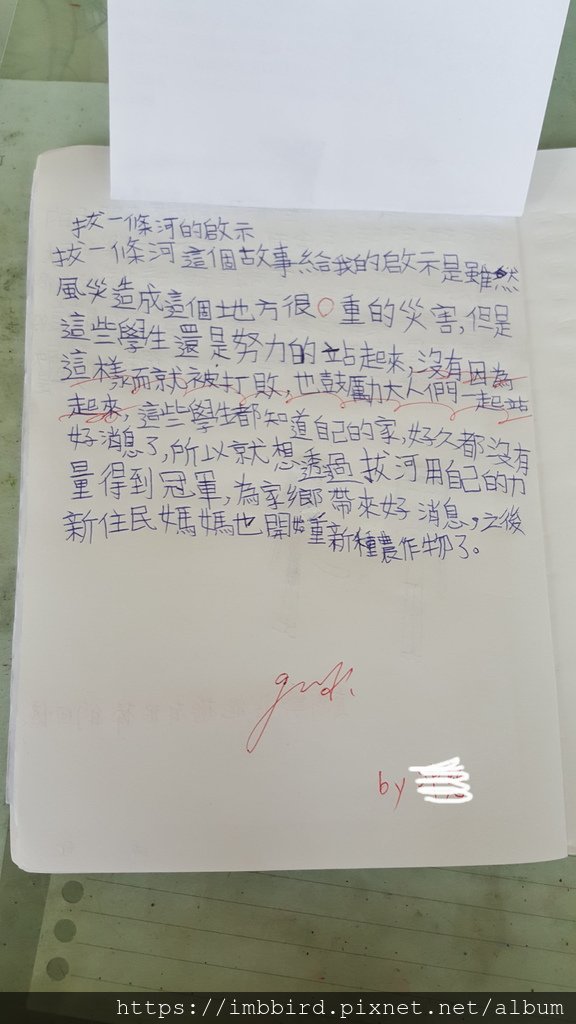 拔一條河的啟示
拔一條河這個故事給我的啟示是雖然
風災造成這個地方很○重的災害,但是
這些學生還是努力的站起來,沒有因為
這樣而就被打敗,也鼓勵大人們一起站
起來,這些學生都知道自己的家,好久都沒有
好消息了,所以就想透過拔河用自己的力
量得到冠軍,為家鄉帶來好消息,之後
新住民媽媽也開始重新種農作物了。
good!
by
https://imbbird.pixnet.net/album